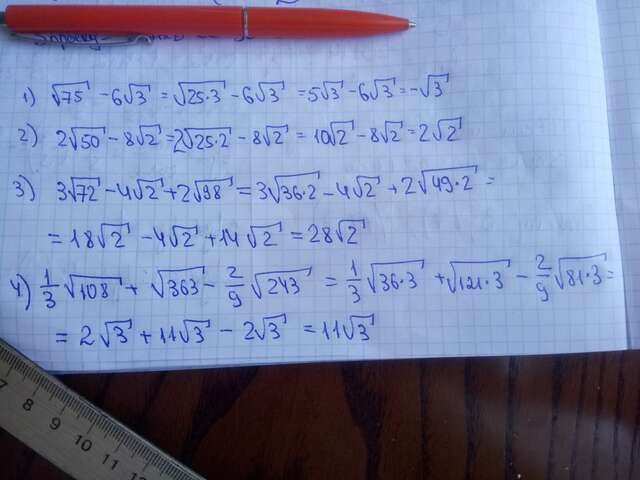 1) √75 - 6√3 = √25·3 - 6√3 = 5√3 - 6√3 = -√3
2) 2√50 - 8√2 = 2√25·2 - 8√2 = 10√2 - 8√2 = 2√2
3) 3√72 - 4√2 + 2√98 = 3√36·2 - 4√2 + 2√49·2 =
= 18√2 - 4√2 + 14√2 = 28√2
4) 1/3√108 + √363 - 2/9√243 = 1/3√36·3 + √121·3 - 2/9√81·3 =
= 2√3 + 11√3 - 2√3 = 11√3
7 8 9 10 11 12